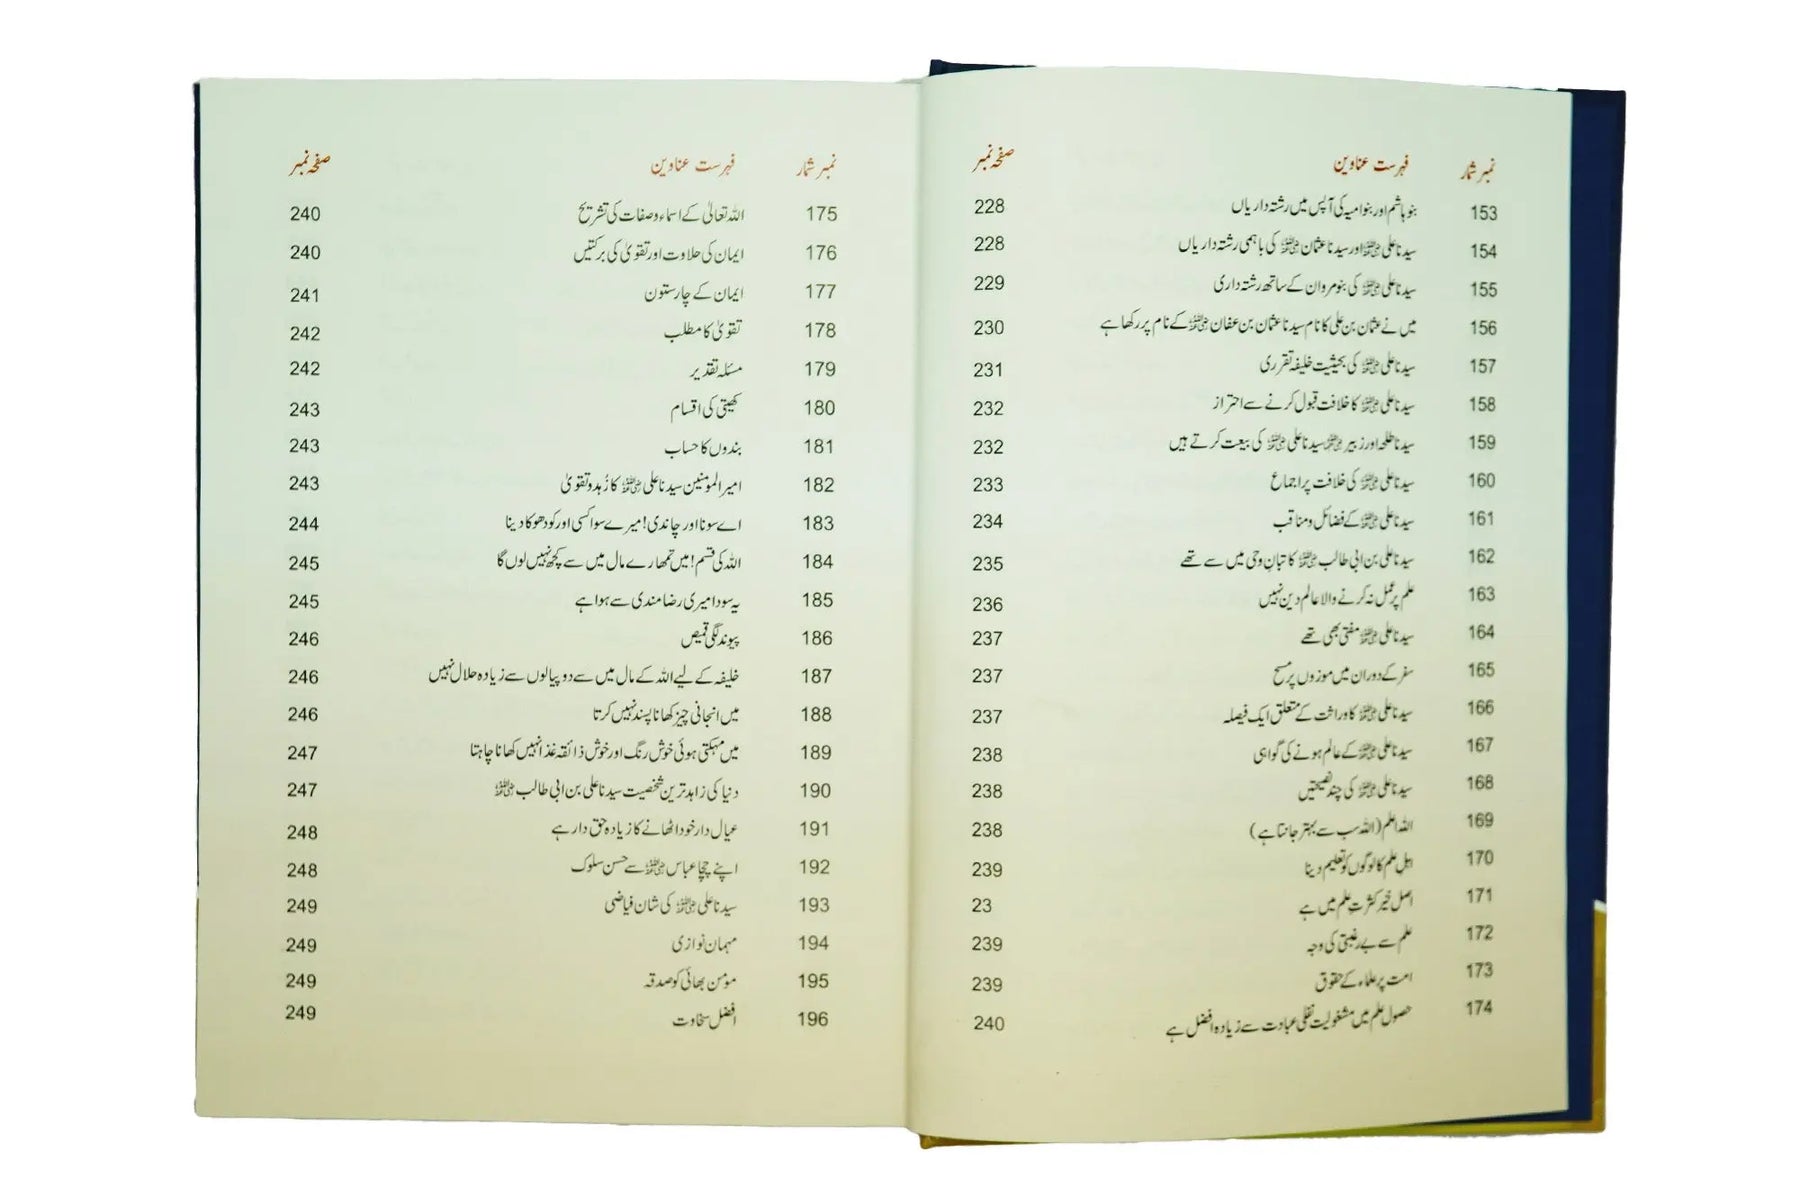 نمبر شمار فہرست عناوین صفحہ نمبر
153 بنو ہاشم اور بنو امیہ کی آپس میں رشتہ داریاں 228
154 سیدنا علی رضی اللہ عنہ اور سیدنا عثمان رضی اللہ عنہ کی باہمی رشتہ داریاں 228
155 سیدنا علی رضی اللہ عنہ کی بنو مروان کے ساتھ رشتہ داری 229
156 میں نے عثمان بن علی کا نام سیدنا عثمان بن عفان رضی اللہ عنہ کے نام پر رکھا ہے 230
157 سیدنا علی رضی اللہ عنہ کی بحیثیت خلیفہ تقرری 231
158 سیدنا علی رضی اللہ عنہ کا خلافت قبول کرنے سے احتراز 232
159 سیدنا طلحہ اور زبیر رضی اللہ عنہما سیدنا علی رضی اللہ عنہ کی بیعت کرتے ہیں 232
160 سیدنا علی رضی اللہ عنہ کی خلافت پر اجماع 233
161 سیدنا علی رضی اللہ عنہ کے فضائل و مناقب 234
162 سیدنا علی بن ابی طالب رضی اللہ عنہ کاتبانِ وحی میں سے تھے 235
163 علم پر عمل نہ کرنے والا عالم دین نہیں 236
164 سیدنا علی رضی اللہ عنہ مفتی بھی تھے 237
165 سفر کے دوران میں موزوں پر مسح 237
166 سیدنا علی رضی اللہ عنہ کا وراثت کے متعلق ایک فیصلہ 237
167 سیدنا علی رضی اللہ عنہ کے عالم ہونے کی گواہی 238
168 سیدنا علی رضی اللہ عنہ کی چند نصیحتیں 238
169 اللہ اعلم (اللہ سب سے بہتر جانتا ہے) 238
170 اہل علم کا لوگوں کو تعلیم دینا 239
171 اصل خیر کثرتِ علم میں ہے 23
172 علم سے بے رغبتی کی وجہ 239
173 امت پر علماء کے حقوق 239
174 حصول علم میں مشغولیت نفلی عبادت سے زیادہ افضل ہے 240
نمبر شمار فہرست عناوین صفحہ نمبر
175 اللہ تعالیٰ کے اسماء و صفات کی تشریح 240
176 ایمان کی حلاوت اور تقویٰ کی برکتیں 240
177 ایمان کے چار ستون 241
178 تقویٰ کا مطلب 242
179 مسئلہ تقدیر 242
180 کھیتی کی اقسام 243
181 بندوں کا حساب 243
182 امیر المومنین سیدنا علی رضی اللہ عنہ کا زُہد و تقویٰ 243
183 اے سونا اور چاندی! میرے سوا کسی اور کو دھوکا دینا 244
184 اللہ کی قسم! میں تمھارے مال میں سے کچھ نہیں لوں گا 245
185 یہ سودا میری رضامندی سے ہوا ہے 245
186 پیوند لگی قمیص 246
187 خلیفہ کے لیے اللہ کے مال میں سے دو پیالوں سے زیادہ حلال نہیں 246
188 میں انجانی چیز کھانا پسند نہیں کرتا 246
189 میں مہکتی ہوئی خوش رنگ اور خوش ذائقہ غذا نہیں کھانا چاہتا 247
190 دنیا کی زاہد ترین شخصیت سیدنا علی بن ابی طالب رضی اللہ عنہ 247
191 عیال دار خود اٹھانے کا زیادہ حق دار ہے 248
192 اپنے چچا عباس رضی اللہ عنہ سے حسن سلوک 248
193 سیدنا علی رضی اللہ عنہ کی شان فیاضی 249
194 مہمان نوازی 249
195 مومن بھائی کو صدقہ 249
196 افضل سخاوت 249